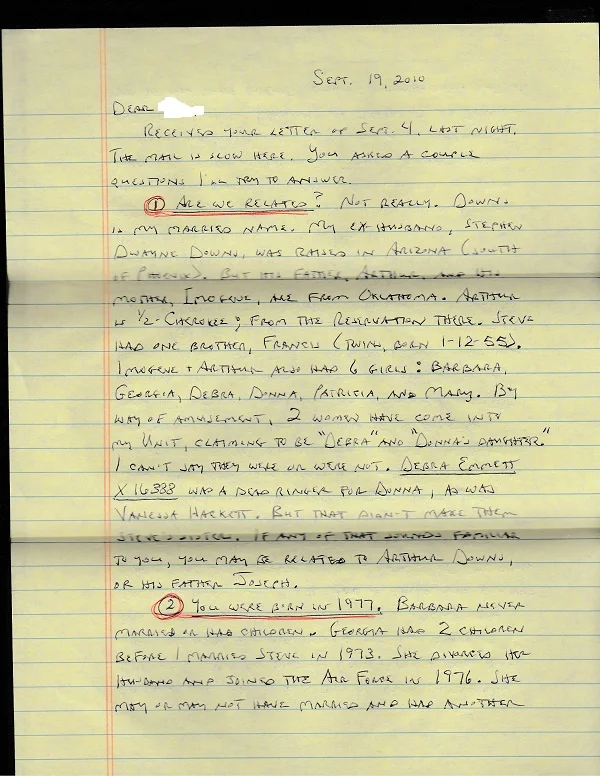 Sept. 19, 2010
Dear
Received your letter of Sept. 4, last night.
The mail is slow here. You asked a couple
questions I'll try to answer.
① Are we related? Not really. Downs
is my married name. My ex husband, Stephen
Dwayne Downs, was raised in Arizona (south
of Phoenix). But his father, Arthur, and his
mother, Imogene, are from Oklahoma. Arthur
is 1/2-Cherokee; from the Reservation there. Steve
had one brother, Francis (twin, born 1-12-55).
Imogene + Arthur also had 6 girls: Barbara,
Georgia, Debra, Donna, Patricia, and Mary. By
way of amusement, 2 women have come into
my unit, claiming to be "Debra" and "Donna's daughter."
I can't say they were or were not. Debra Emmett
X16388 was a dead ringer for Donna, as was
Vanessa Harkett. But that didn't make them
Steve's sister. If any of that sounds familiar
to you, you may be related to Arthur Downs,
or his father Joseph.
② You were born in 1977. Barbara never
married or had children. Georgia had 2 children
before I married Steve in 1973. She divorced her
husband and joined the Air Force in 1976. She
may or may not have married and had another